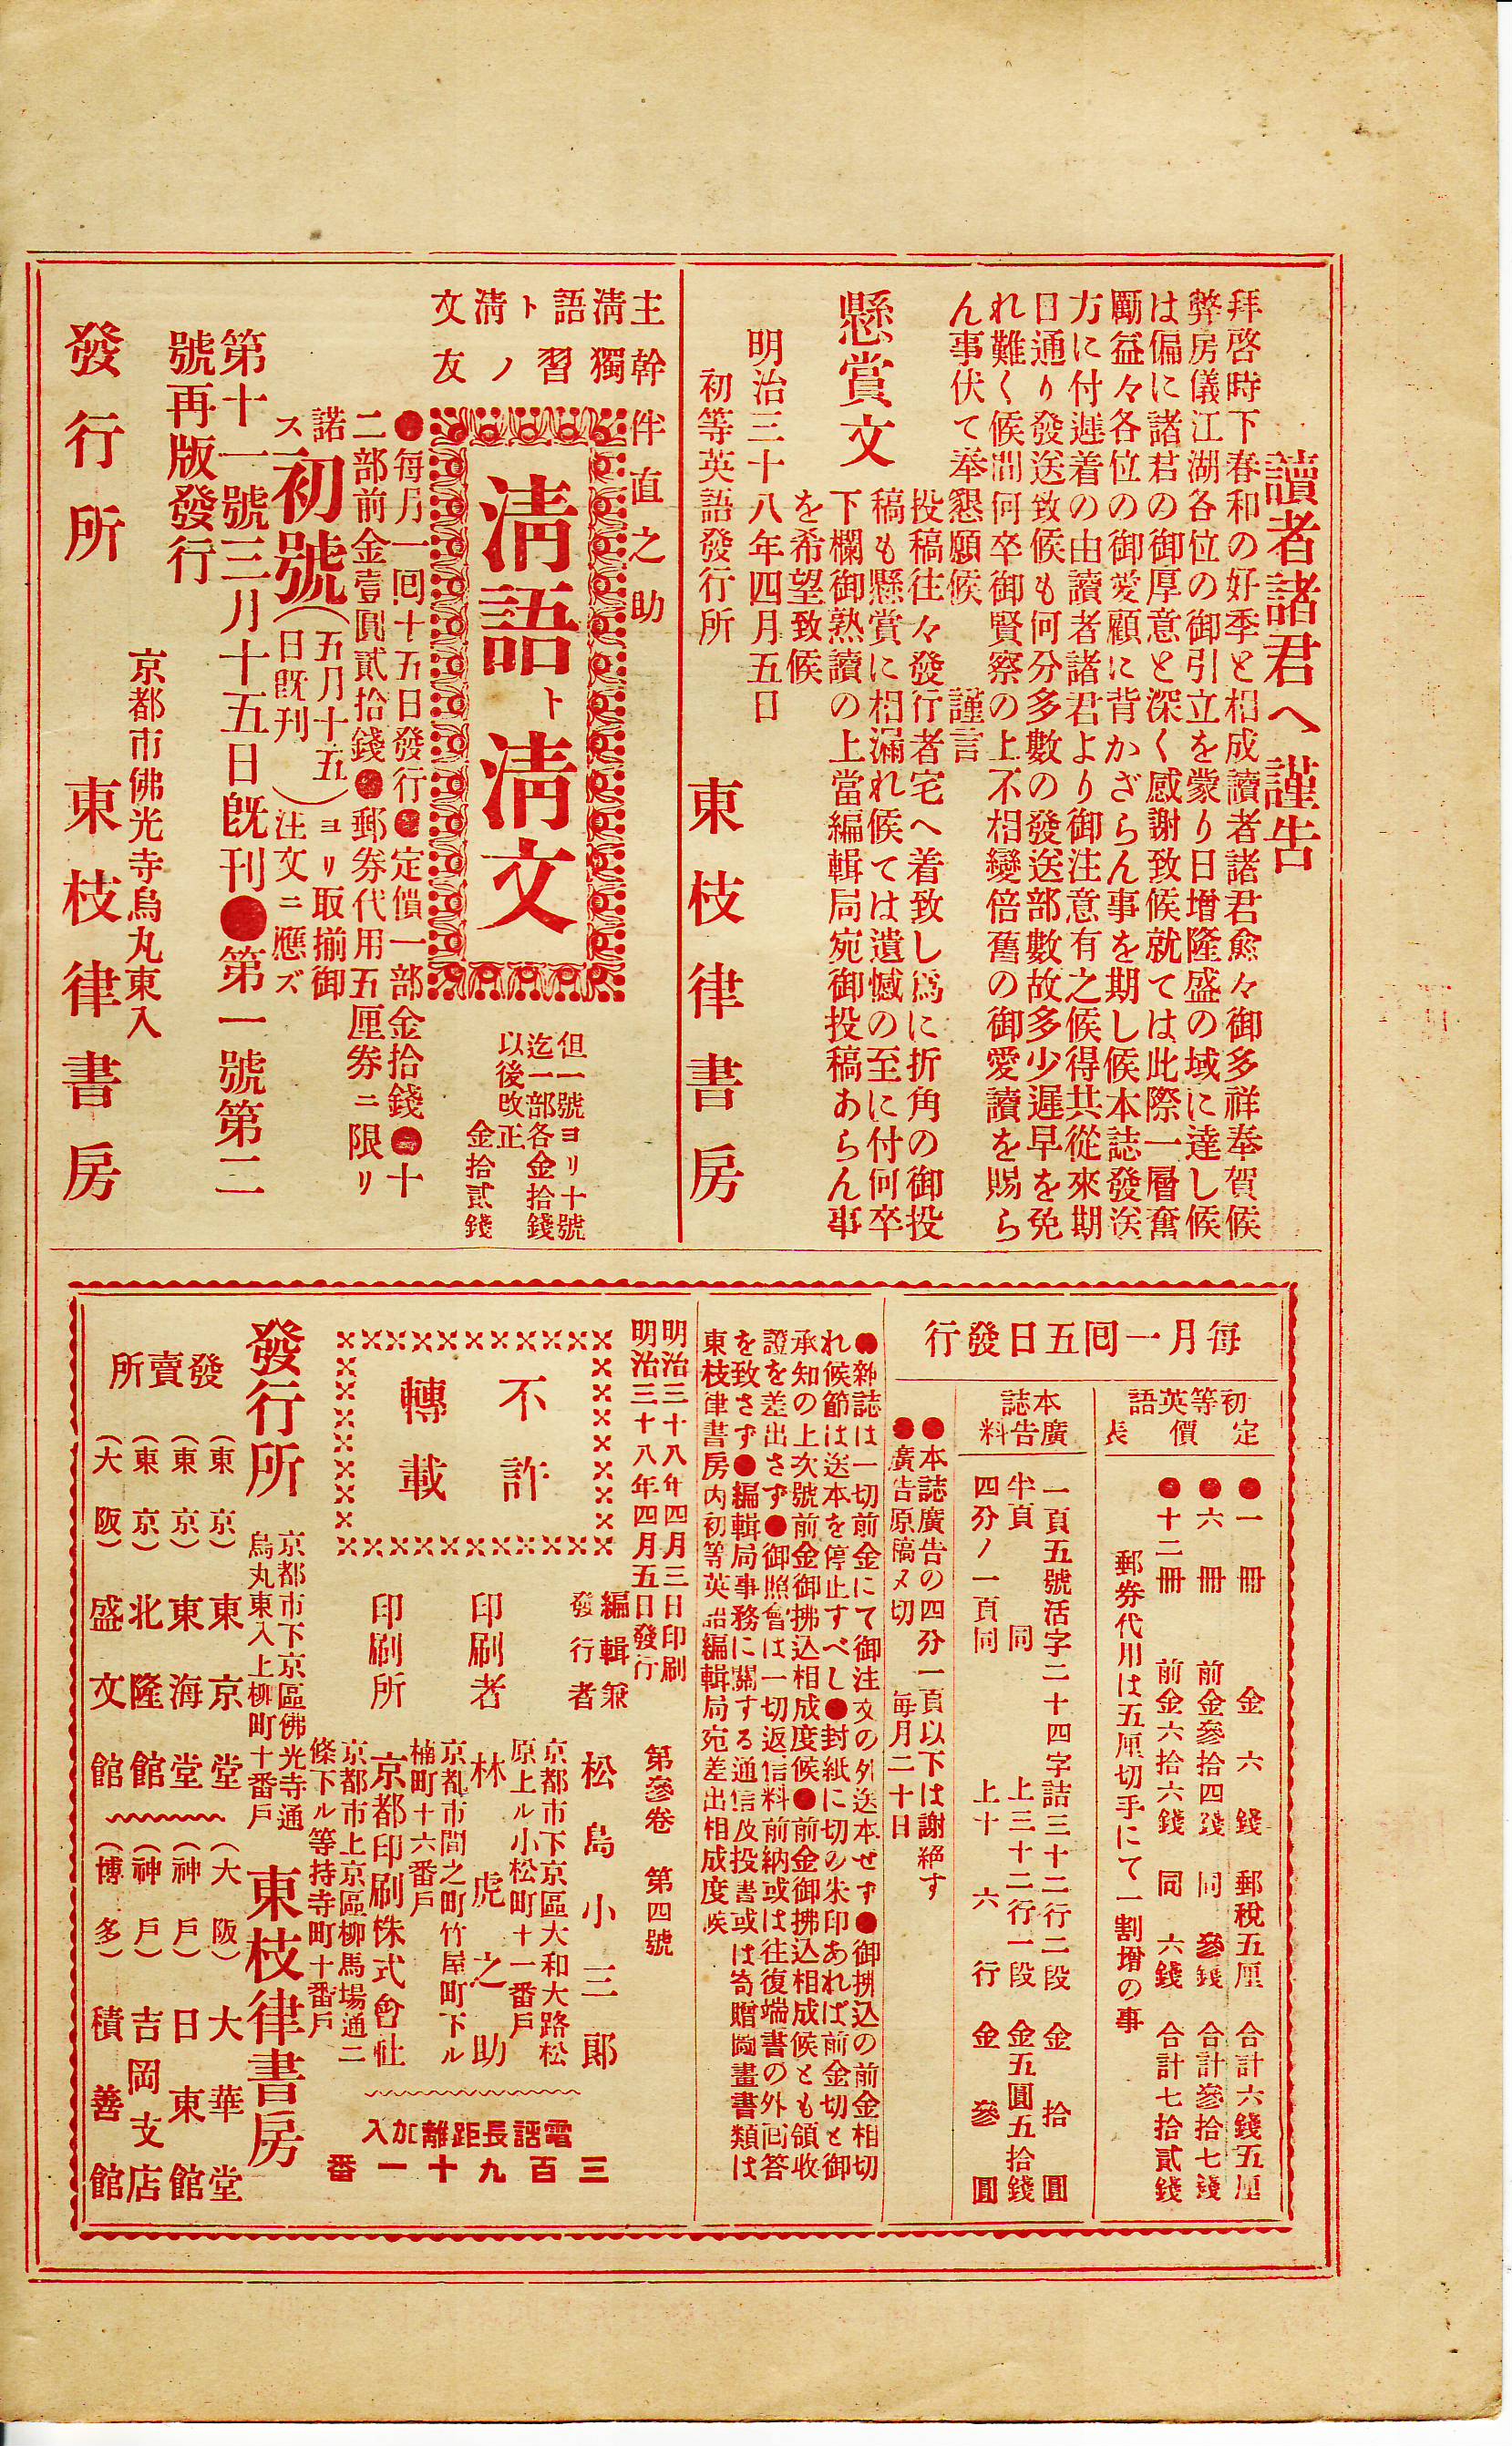 讀者諸君へ謹告
拜啓時下春和の好季と相成讀者諸君愈々御多祥奉賀候
弊房儀江湖各位の御引立を蒙り日增隆盛の域に達し候
は偏に諸君の御厚意と深く感謝致候就ては此際一層奮
勵益々各位の御愛顧に背かざらん事を期し候本誌發送
方に付遲着の由讀者諸君より御注意有之候得共從來期
日通り發送致候も何分多數の發送部數故多少遲早を免
れ難く候間何卒御賢察の上不相變倍舊の御愛讀を賜ら
ん事伏て奉懇願候　謹言
懸賞文
投稿往々發行者宅へ着致し爲に折角の御投
稿も懸賞に相漏れ候ては遺憾の至に付何卒
下欄御熟讀の上當編輯局宛御投稿あらん事
を希望致候
明治三十八年四月五日
初等英語發行所
東枝律書房
主幹　伴直之助
淸獨
語習
トノ
淸
文友
淸語ト淸文
但一號ヨリ十號
迄一部各金拾錢
以後改正
金拾貳錢
●每月一回十五日發行●定價一部金拾錢●十
二部前金壹圓貳拾錢●郵券代用五厘券ニ限リ
諾ス初號（五月十五日旣刊）ヨリ取揃御注文ニ應ズ
第十一號三月十五日旣刊●第一號第二
號再版發行
京都市佛光寺烏丸東入
發行所　東枝律書房
每月一回五日發行
初等英語
定價表
●一冊　金六錢　郵稅五厘　合計六錢五厘
●六冊　前金參拾四錢　同　參錢　合計參拾七錢
●十二冊　前金六拾六錢　同　六錢　合計七拾貳錢
郵券代用は五厘切手にて一割增の事
本誌
廣告料
一頁五號活字二十四字詰三十二行二段　金拾圓
半頁　同　上三十二行一段　金五圓五拾錢
四分ノ一頁同　上十六行　金參圓
●本誌廣告の四分一頁以下は謝絕す
●廣告原稿〆切　每月二十日
●雜誌は一切前金にて御注文の外送本せず●御拂込の前金相切
れ候節は送本を停止すべし●封紙に切の朱印あれば前金切と御
承知の上次號前金御拂込相成度候●前金御拂込相成候とも領收
證を差出さず●御照會は一切返信料前納或は往復端書の外回答
を致さず●編輯局事務に關する通信及投書或は寄贈圖畫書類は
東枝律書房内初等英語編輯局宛差出相成度候
明治三十八年四月三日印刷
明治三十八年四月五日發行
第參卷　第四號
不許
轉載
編輯兼
發行者
松島小三郎
京都市下京區大和大路松
原上ル小松町十一番戶
印刷者
林虎之助
京都市間之町竹屋町下ル
楠町十六番戶
印刷所
京都印刷株式會社
京都市上京區柳馬場通二
條下ル等持寺町十番戶
電話長距離加入
三百九十一番
發行所
京都市下京區佛光寺通
烏丸東入上柳町十番戶
東枝律書房
發賣所
（東京）東京堂　（大阪）大華堂
（東京）東海堂　（神戶）日東館
（東京）北隆館　（神戶）吉岡支店
（大阪）盛文館　（博多）積善館